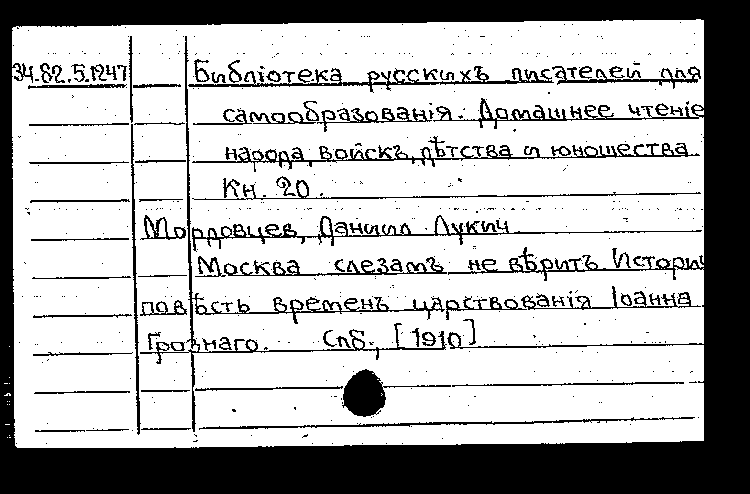 34.82.5.1247 Библіотека русскихъ писателей для
самообразованія. Домашнее чтеніе
народа, войскъ, дѣтства и юношества
Кн. 20.
Мордовцев, Даниил Лукич
Москва слезамъ не вѣритъ. Истори
повѣсть временъ царствованія Іоанна
Грознаго. Спб., [1910]